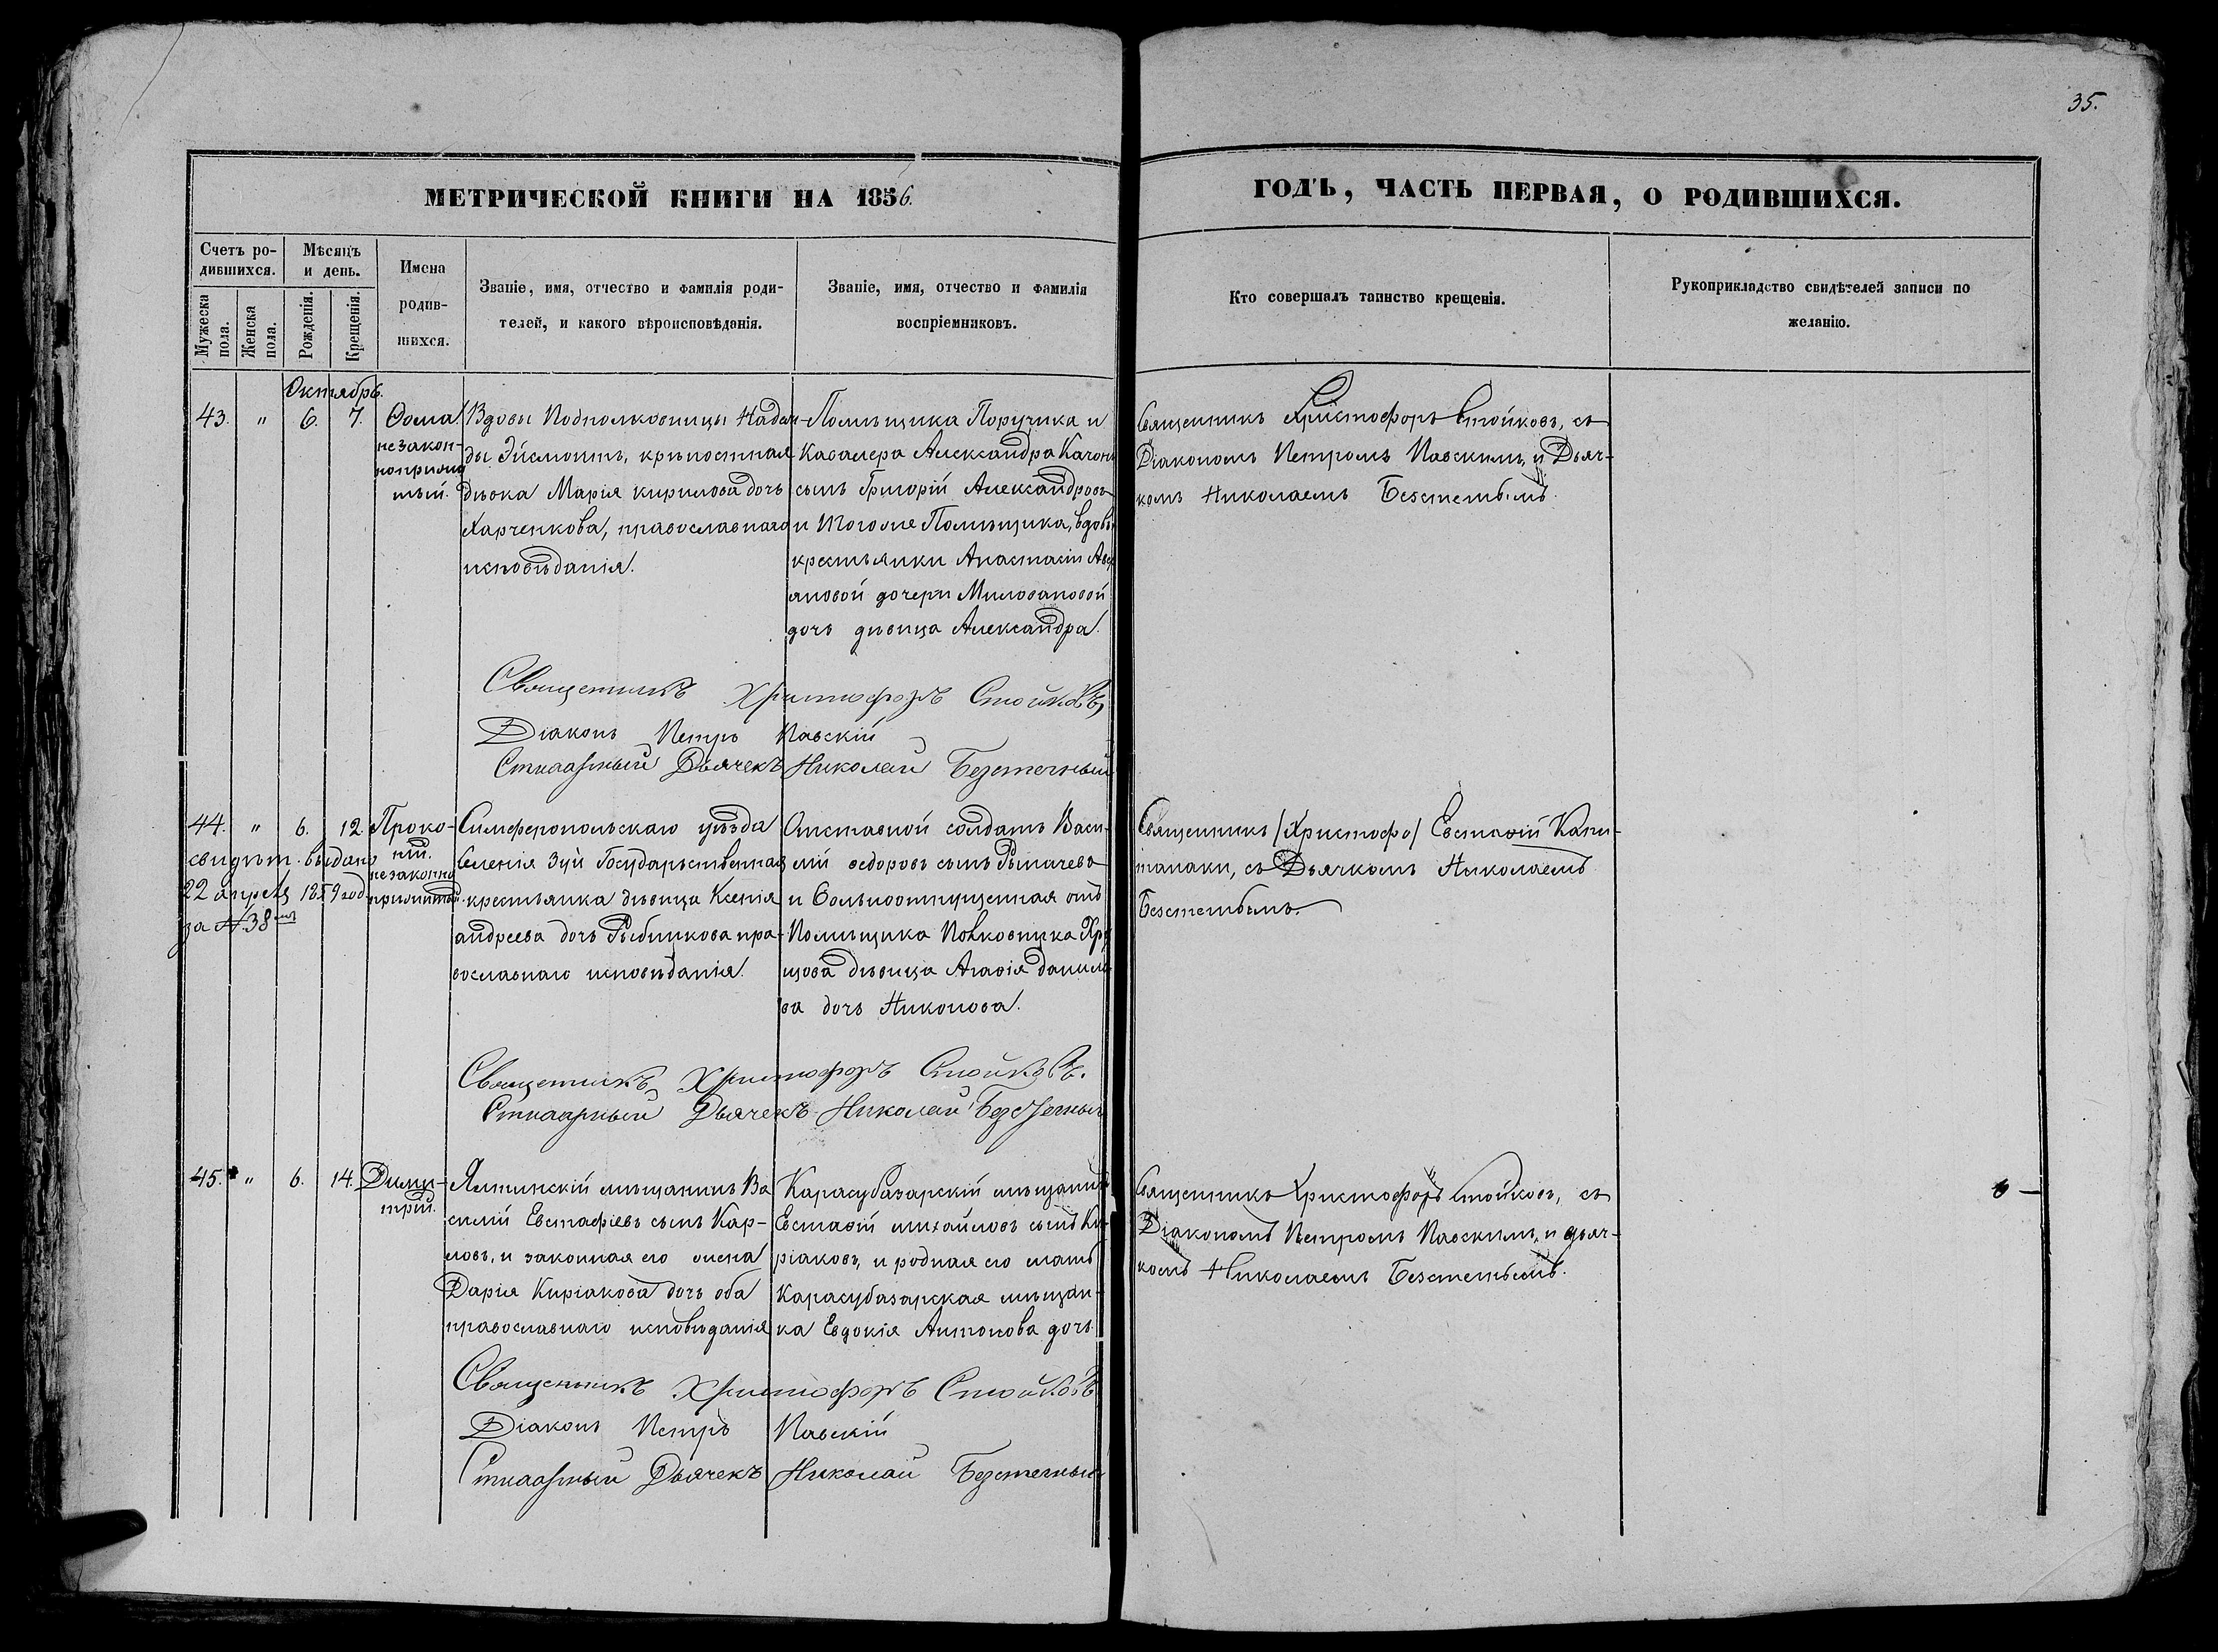 35.
МЕТРИЧЕСКОЙ КНИГИ НА 1856.
ГОДЪ, ЧАСТЬ ПЕРВАЯ, О РОДИВШИХСЯ.
Счетъ ро-
дившихся.
Мужеска
пола.
Женска
пола.
Мѣсяцъ
и день.
Рожденія.
Крещенія.
Имена
родив-
шихся.
Званіе, имя, отчество и фамилія роди-
телей, и какого вѣроисповѣданія.
Званіе, имя, отчество и фамилія
воспріемниковъ.
Кто совершалъ таинство крещенія.
Рукоприкладство свидѣтелей записи по
желанію.
Октябрь.
43. " 6. 7.
Ѳома
незакон-
тый.
Вдовы Подполковницы Надеж-
ды Эйсмонтъ, крѣпостная
дѣвка Марія кирилова дочь
Харченкова, православнаго
исповѣданія.
Помѣщика Поручика и
Кавалера Александра
сынъ Григорій Александровъ
и тогоже Помѣщика, вдовы
крестьянки Анастасіи
яновой дочери Миловановой
дочь дѣвица Александра.
Священникъ Христофоръ Стойковъ, съ
Діакономъ Петромъ Павскимъ, и Дьяч-
комъ Николаемъ Безстенымъ.
Священникъ Христофоръ Стойковъ,
Діаконъ Петръ Павскій
Стихарный Дьячекъ Николай Безстенный
44. " 6. 12.
свидѣт. выдано
22 апреля 1859 год
за №. 38мъ
Проко-
пій.
незаконно
прижитый.
Симферопольскаго уѣзда
селенія Зуй Государственная
крестьянка дѣвица Ксенія
андреева дочь Рыбникова пра-
вославнаго исповѣданія.
Отставной солдатъ Васи-
лій ѳедоровъ сынъ
и Вольноотпущенная отъ
Помѣщика Полковника
щова дѣвица Агафія данило-
ва дочь Никонова.
Священникъ /Христофо/ Евстафій Капи-
танаки, съ Дьячкомъ Николаемъ
Безстенымъ.
Священникъ Христофоръ Стойковъ.
Стихарный Дьячекъ Николай Безстенный
45. " 6. 14.
Дими-
трій.
Ялтинскій мѣщанинъ Ва
силій Евстафіевъ сынъ Кар-
повъ, и законная его жена
Дарія Киріакова дочь оба
православнаго исповѣданія
Карасубазарскій мѣщанинъ
Евстафій михайловъ сынъ Ки-
ріаковъ, и родная его мать
Карасубазарская мѣщан-
ка Евдокія Антонова дочь.
Священникъ Христофоръ Стойковъ, съ
Діакономъ Петромъ Павскимъ, и дьяч-
комъ Николаемъ Безстенымъ.
Священникъ Христофоръ Стойковъ
Діаконъ Петръ Павскій
Стихарный Дьячекъ Николай Безстенный